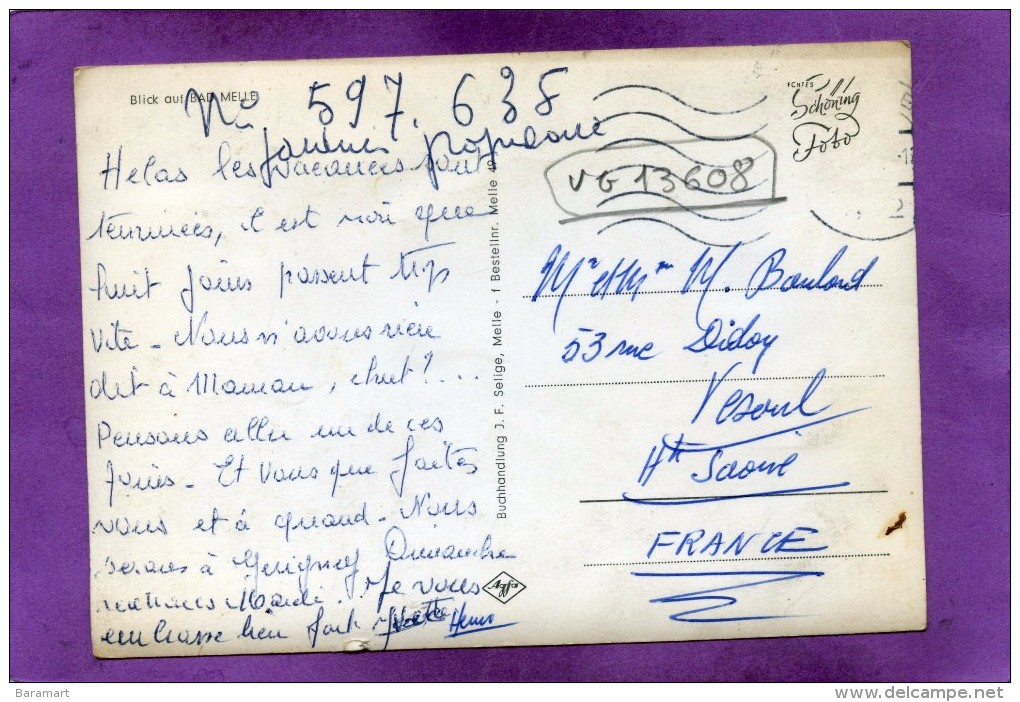 Blick auf BAD MELLE
No 597.638
Helas les vacances sont
terminées, il est vrai que
huit jours passent trop
vite - Nous n'avons rien
dit à Maman, chut! ...
Pensons aller un de ces
jours - Et vous que faites
vous et à quand - Nous
serons à Dimanche
Mardi. Je vous
embrasse bien fort Yvette Henri
Buchhandlung J. F. Selige, Melle - f Bestellnr. Melle 49
Agfa
ECHTES
Schöning
Foto
VG 13608
Mr et Mme M. Boulard
53 rue Didon
Vesoul
Hte Saône
FRANCE
Baramart
www.delcampe.net